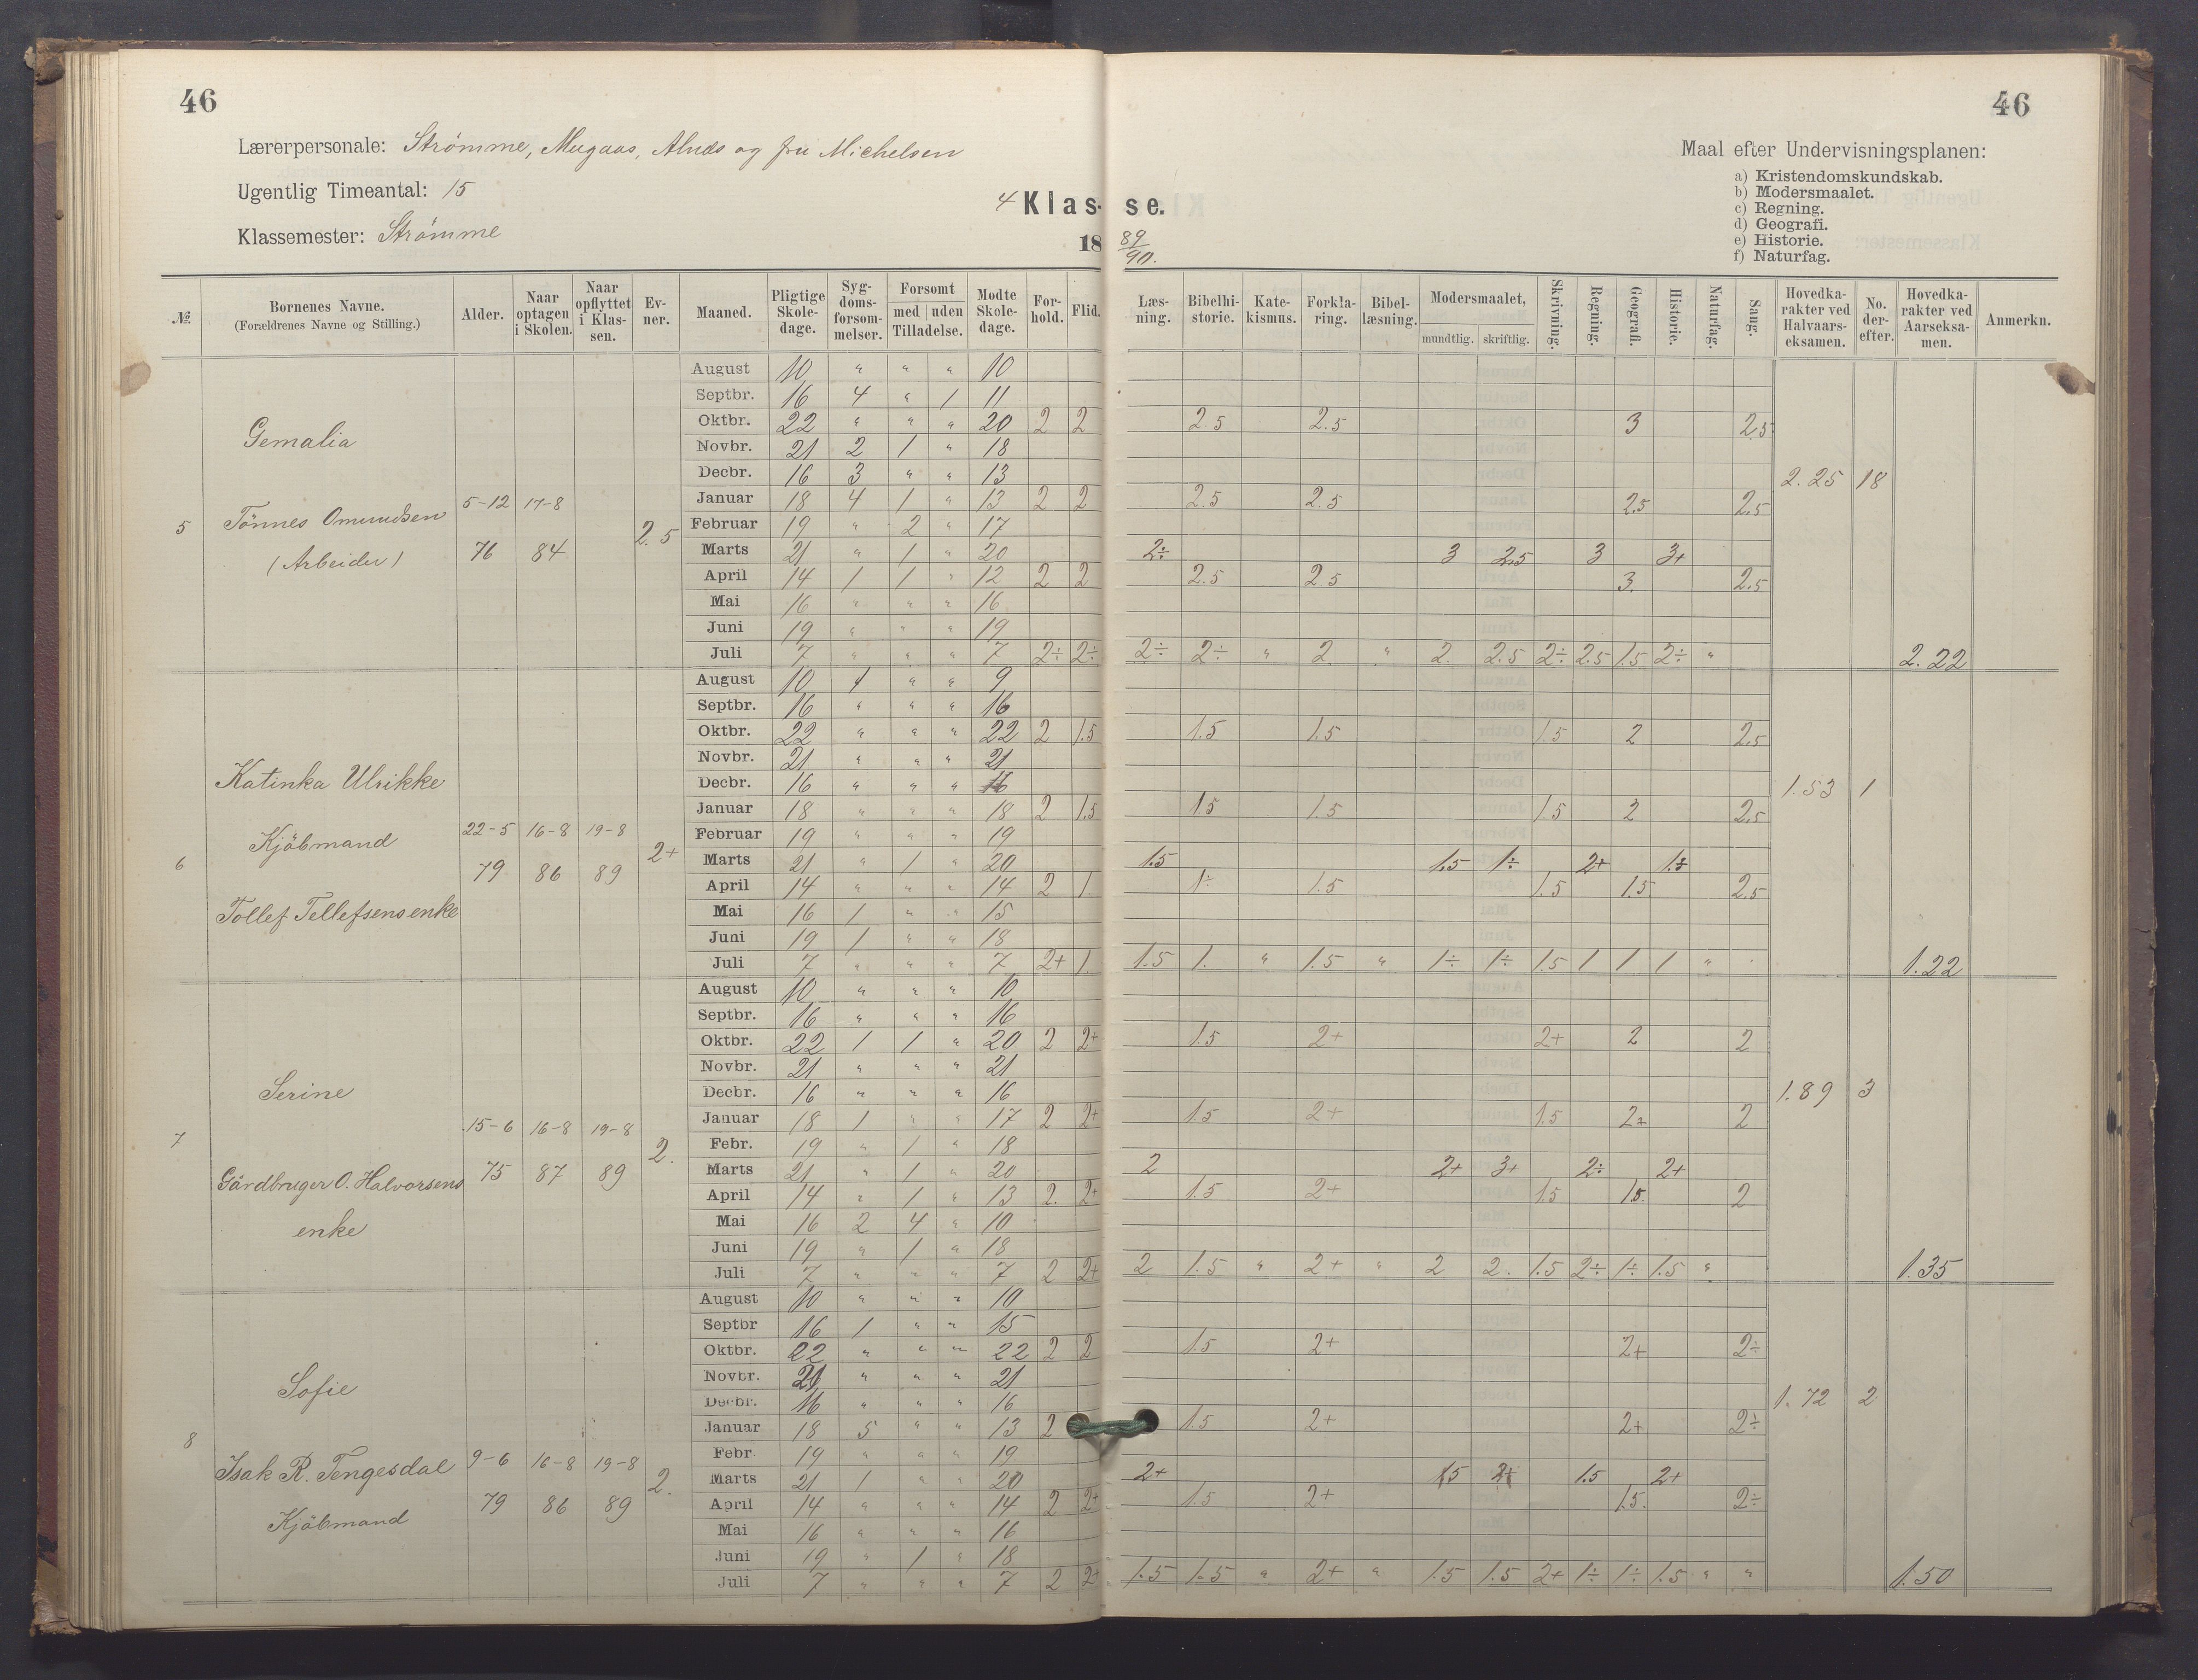 46
46
Lærerpersonale: Strømme, Mugaas, Alnæs og fru Michelsen
Ugentlig Timeantal: 15
Klassemester: Strømme
4 Klas- se.
18 89/90.
Maal efter Undervisningsplanen:
a) Kristendomskundskab.
b) Modersmaalet.
c) Regning.
d) Geografi.
e) Historie.
f) Naturfag.
№ Børnenes Navne. (Forældrenes Navne og Stilling.) Alder. Naar optagen i Skolen. Naar opflyttet i Klassen. Evner. Maaned. Pligtige Skoledage. Sygdomsforsømmelser. Forsømt med uden Tilladelse. Mødte Skoledage. Forhold. Flid. Læsning. Bibelhistorie. Katekismus. Forklaring. Bibellæsning. Modersmaalet, mundtlig. skriftlig. Skrivning. Regning. Geografi. Historie. Naturfag. Sang. Hovedkarakter ved Halvaarseksamen. No. derefter. Hovedkarakter ved Aarseksamen. Anmerkn.
5 Gemalia
Tönnes Omundsen
(Arbeider)
5-12 76 17-8 84 2.5
August 10 " " " 10
Septbr. 16 4 " 1 11
Oktbr. 22 " " " 20 2 2 2.5 2.5 3 2.5
Novbr. 21 2 1 " 18
Decbr. 16 3 " " 13 2.25 18
Januar 18 4 1 " 13 2 2 2.5 2.5 2.5 2.5
Februar 19 " 2 " 17
Marts 21 " 1 " 20 2÷ 3 2.5 3 3+
April 14 1 1 " 12 2 2 2.5 2.5 3. 2.5
Mai 16 " " " 16
Juni 19 " " " 19
Juli 7 " " " 7 2÷ 2÷ 2÷ 2÷ " 2 " 2. 2.5 2÷ 2.5 1.5 2÷ " 2.22
6 Katinka Ulrikke
Kjöbmand
Tollef Tellefsens enke
22-5 79 16-8 86 19-8 89 2+
August 10 1 " " 9
Septbr. 16 " " " 16
Oktbr. 22 " " " 22 2 1.5 1.5 1.5 1.5 2 2.5
Novbr. 21 " " " 21
Decbr. 16 " " " 16 1.53 1
Januar 18 " " " 18 2 1.5 1.5 1.5 1.5 2 2.5
Februar 19 " " " 19
Marts 21 " 1 " 20 1.5 1.5 1÷ 2+ 1÷
April 14 " " " 14 2 1 1÷ 1.5 1.5 1.5. 2.5
Mai 16 1 " " 15
Juni 19 1 " " 18
Juli 7 " " " 7 2+ 1. 1.5 1. " 1.5 " 1÷ 1÷ 1.5 1 1 1 " 1.22
7 Serine
Gårdbruger O. Halvorsens
enke
15-6 75 16-8 87 19-8 89 2.
August 10 " " " 10
Septbr. 16 " " " 16
Oktbr. 22 1 1 " 20 2 2+ 1.5 2+ 2+ 2 2
Novbr. 21 " " " 21
Decbr. 16 " " " 16 1.89 3
Januar 18 1 " " 17 2 2+ 1.5 2+ 1.5 2+ 2
Febr. 19 " 1 " 18
Marts 21 " 1 " 20 2 2+ 3+ 2÷ 2+
April 14 " 1 " 13 2. 2+ 1.5 2+ 1.5 1.5. 2
Mai 16 2 4 " 10
Juni 19 " 1 " 18
Juli 7 " " " 7 2 2+ 2 1.5 " 2+ " 2 2. 1.5 2÷ 1÷ 1.5 " 1.35
8 Sofie
Isak R. Tengesdal
Kjöbmand
9-6 79 16-8 86 19-8 89 2.
August 10 " " " 10
Septbr 16 1 " " 15
Oktbr. 22 " " " 22 2 2 1.5 2+ 2+ 2÷
Novbr. 21 " " " 21
Decbr. 16 " " " 16 1.72 2
Januar 18 5 " " 13 2 1.5 2+ 2+ 2÷
Febr. 19 " " " 19
Marts 21 1 " " 20 2+ 1.5 1.5 2+
April 14 " " " 14 2 2+ 1.5 2+ 1.5. 2÷
Mai 16 " " " 16
Juni 19 " 1 " 18
Juli 7 " " " 7 2 2+ 1.5 1.5 " 2+ " 1.5 1.5 2+ 1÷ 1÷ 1.5 " " 1.50